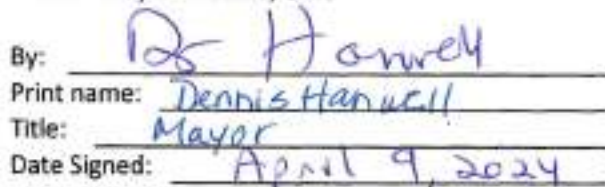 By: Hanwell
Print name: Dennis Hanwell
Title: Mayor
Date Signed: April 9, 2024